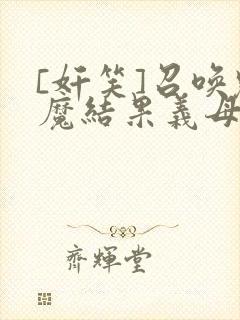 [奸笑]召唤
魔結果義母
齊輝堂